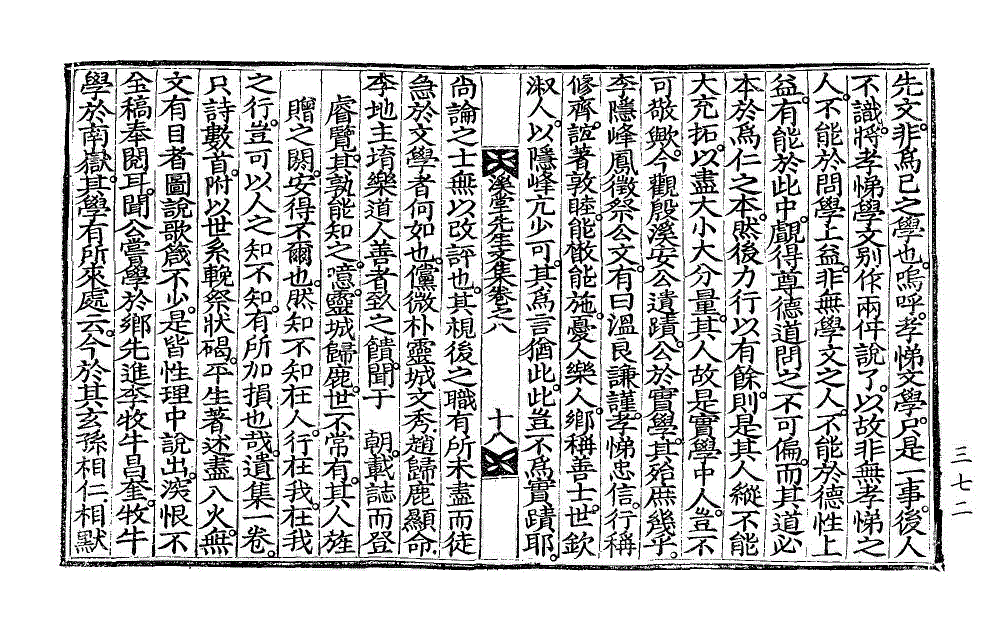 先文。非爲已之學也。嗚呼。孝悌文學。只是一事。後人
不識。將孝悌學文別作兩件說了。以故非無孝悌之
人。不能於問學上益。非無學文之人。不能於德性上
益。有能於此中。覷得尊德道問之不可偏。而其道必
本於爲仁之本。然後力行以有餘。則是其人縱不能
大充拓。以盡大小大分量。其人故是實學中人。豈不
可敬歟。今觀殷溪安公遺蹟。公於實學。其殆庶幾乎。
李隱峰鳳徵祭公文。有曰溫良謙謹。孝悌忠信。行稱
修齊。誼著敦睦。能散能施。憂人樂人。鄕稱善士。世欽
淑人。以隱峰亢少可。其爲言猶此。此豈不爲實蹟耶。
溪堂先生文集卷之八
十八
尙論之士無以改評也。其視後之職有所未盡而徒
急於文學者何如也。儻微朴靈城文秀,趙歸鹿顯命,
李地主堉樂道人善者。致之饋。聞于 朝。載誌而登
睿覽。其孰能知之。噫。靈城歸鹿。世不常有。其人旌
贈之闕。安得不爾也。然知不知在人。行在我。在我
之行。豈可以人之知不知。有所加損也哉。遺集一卷。
只詩數首。附以世系輓祭狀碣。平生著述盡入火。無
文有目者圖說歌箴不少。是皆性理中說出。深恨不
全稿奉閱耳。聞公嘗學於鄕先進李牧牛昌奎。牧牛
學於南嶽。其學有所來處云。今於其玄孫相仁相默
三七二